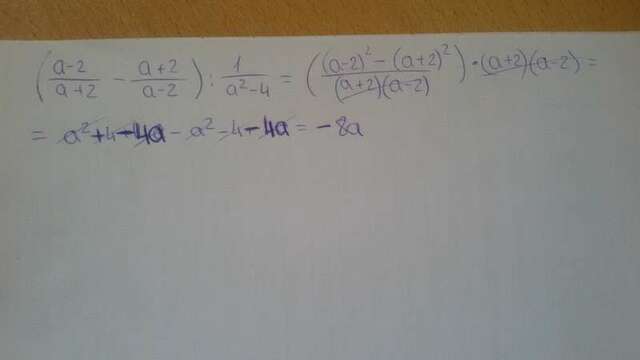 (a-2/a+2 - a+2/a-2) : 1/a²-4 = ((a-2)² - (a+2)²/(a+2)(a-2)) · (a+2)(a-2) =
= a²+4-4a-a²-4-4a = -8a